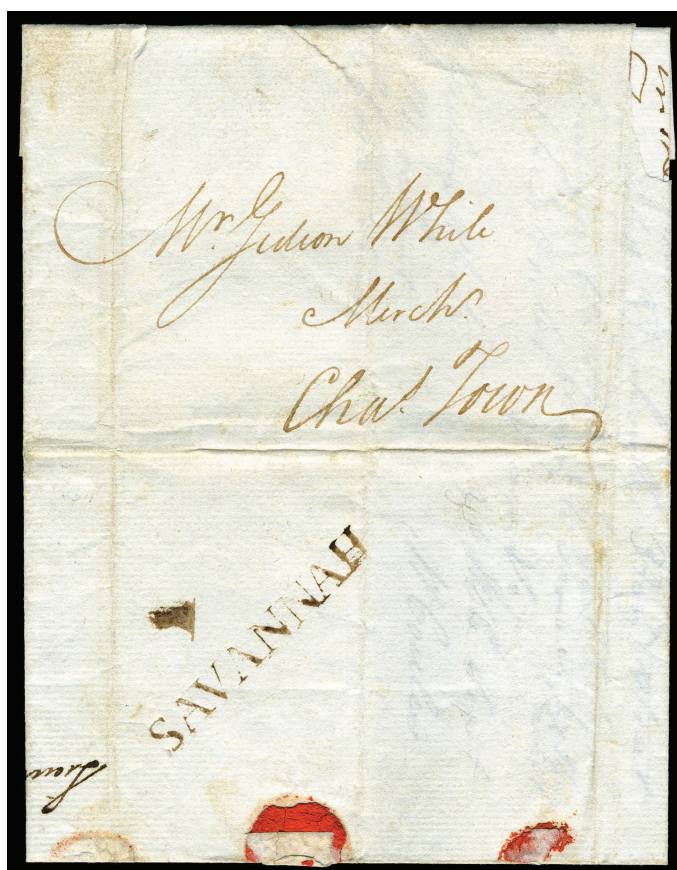 Mr. Gideon White
Mercht.
Chas. Town
SAVANNAH